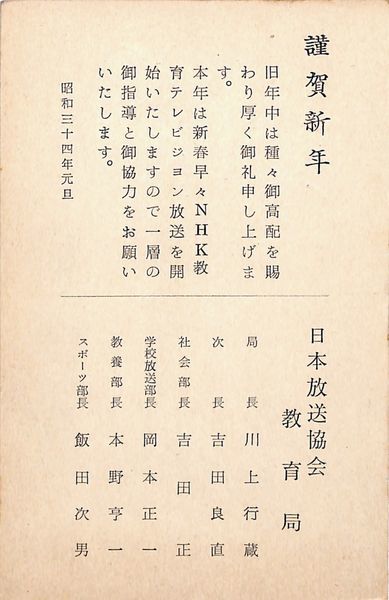 謹賀新年
旧年中は種々御高配を賜
わり厚く御礼申し上げま
す。
本年は新春早々NHK教
育テレビジョン放送を開
始いたしますので一層の
御指導と御協力をお願い
いたします。
昭和三十四年元旦
日本放送協会
教育局
局長 川上行蔵
次長 吉田良直
社会部長 吉田正
学校放送部長 岡本正一
教養部長 本野亨一
スポーツ部長 飯田次男